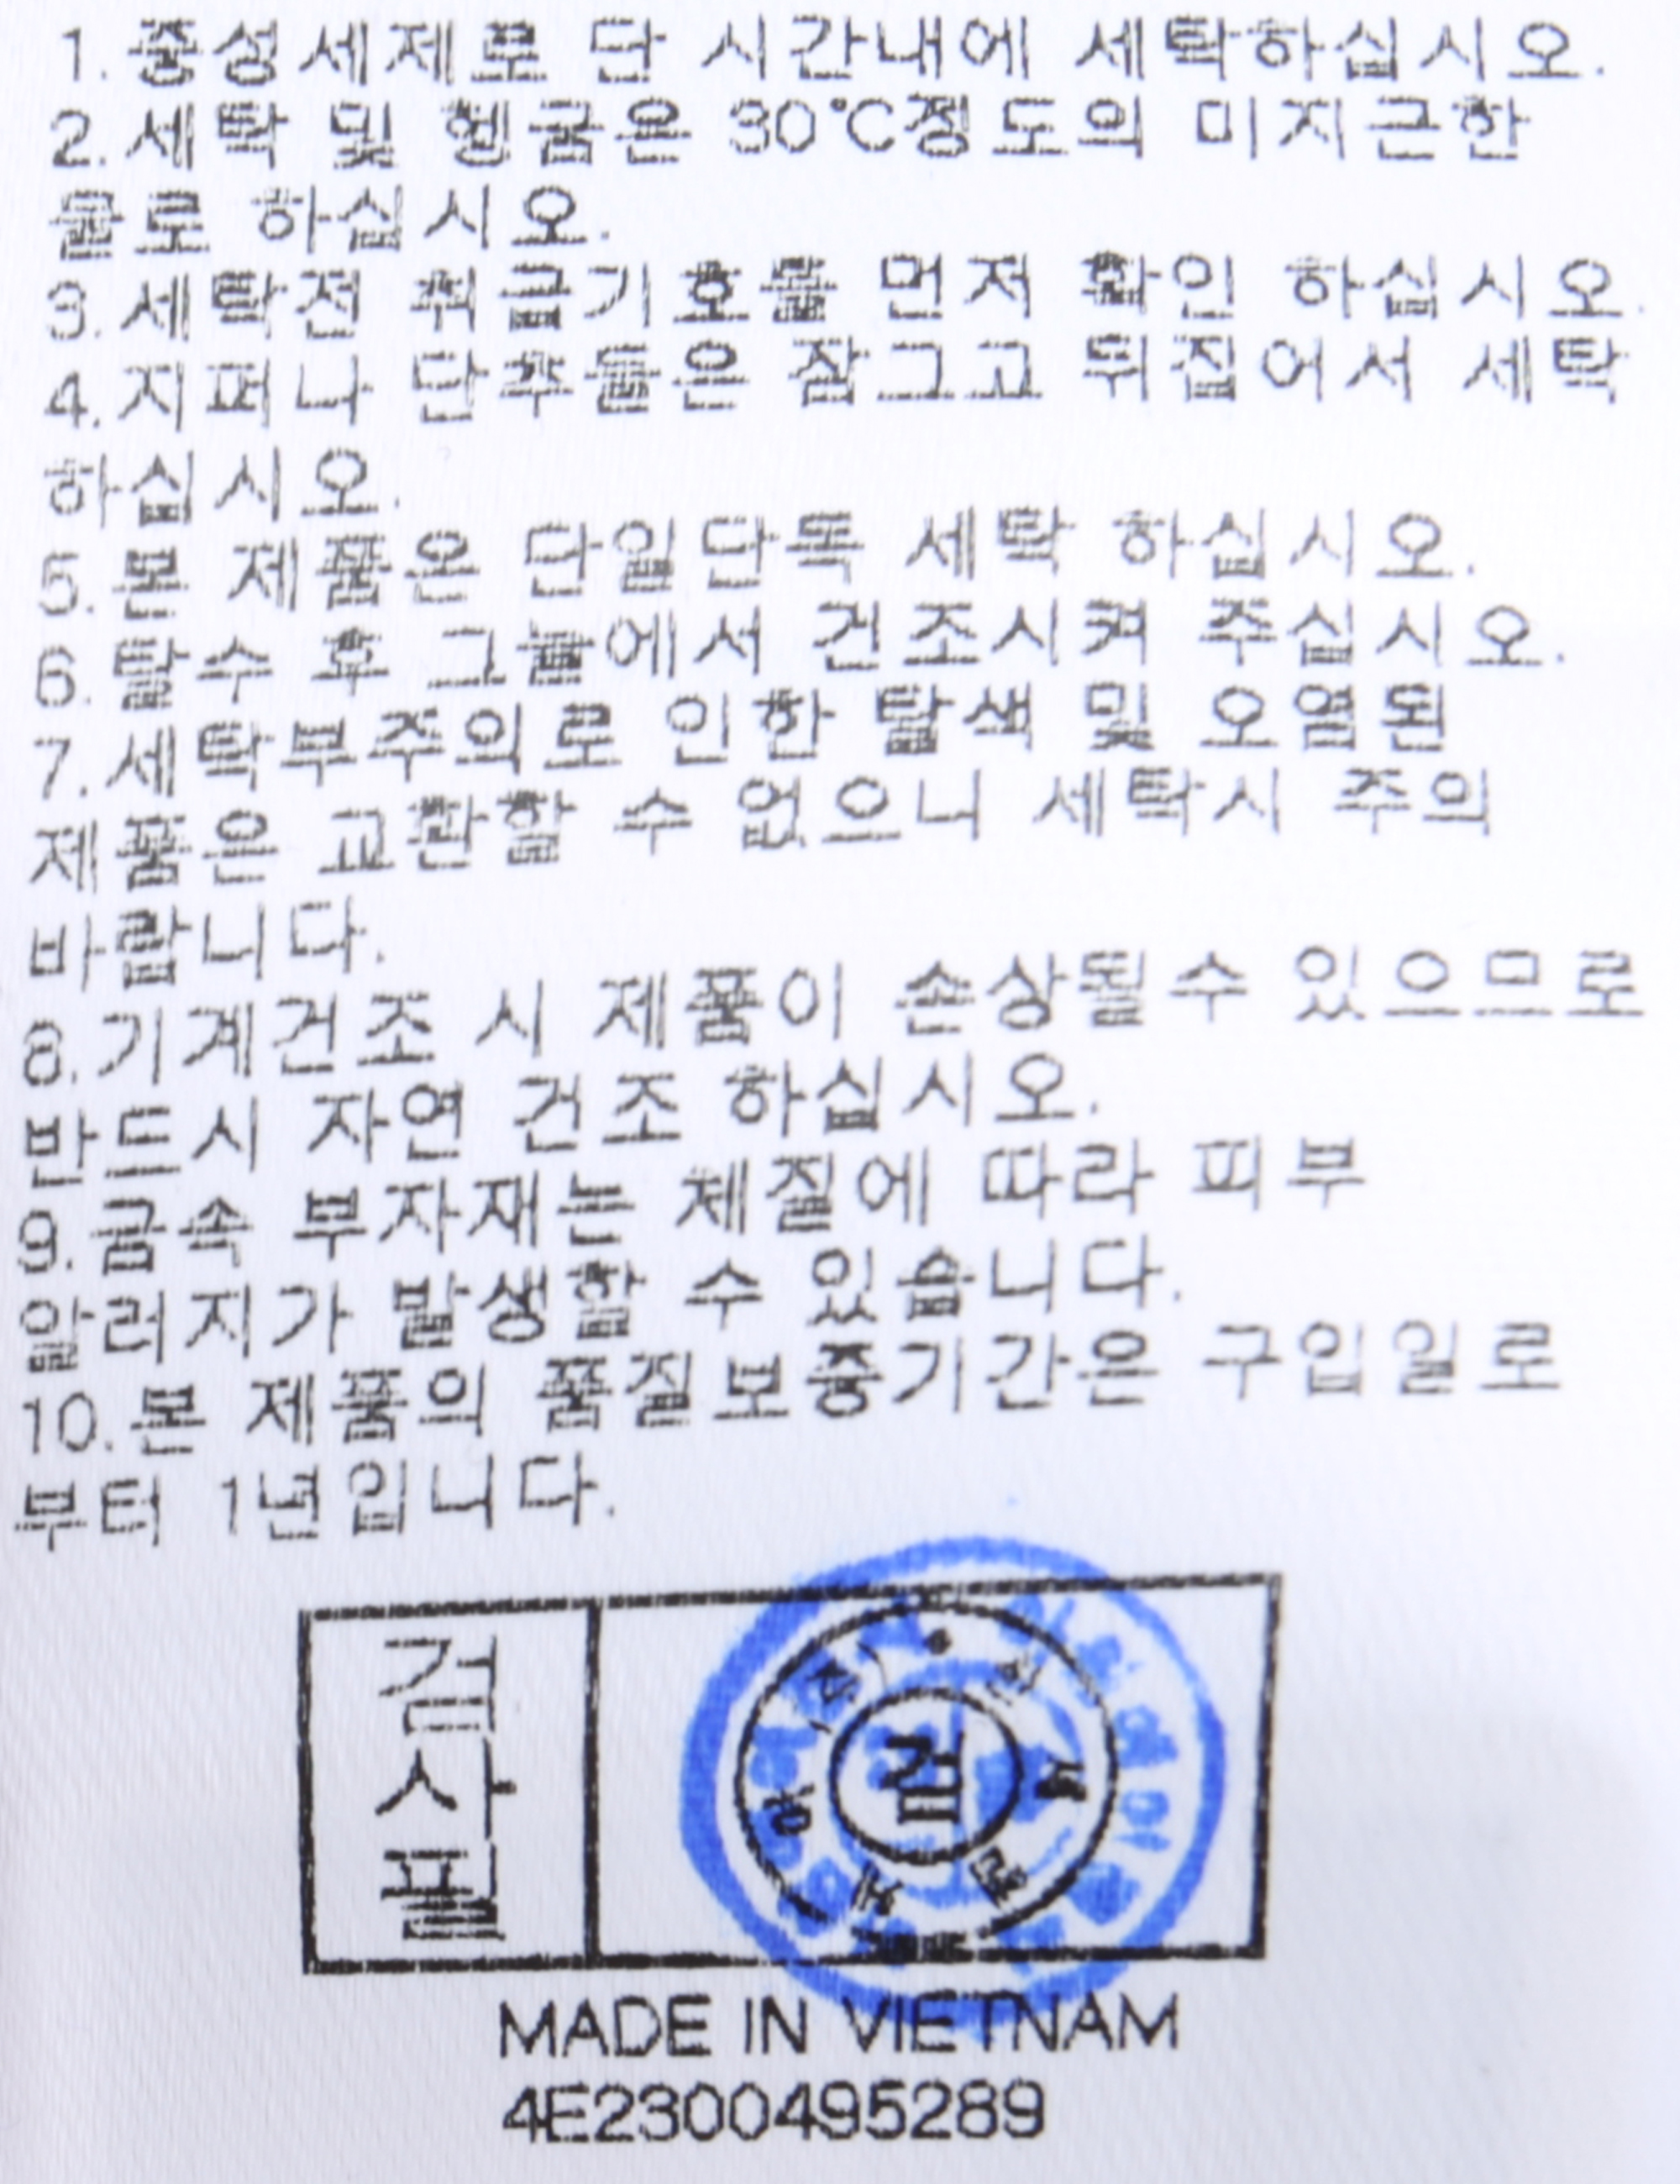 1. 중성세제로 단 시간내에 세탁하십시오.
2. 세탁 및 헹굼은 30℃정도의 미지근한
물로 하십시오.
3. 세탁전 취급기호를 먼저 확인 하십시오.
4. 지퍼나 단추들은 잠그고 뒤집어서 세탁
하십시오.
5. 본 제품은 단일단독 세탁 하십시오.
6. 탈수 후 그늘에서 건조시켜 주십시오.
7. 세탁부주의로 인한 탈색 및 오염된
제품은 교환할 수 없으니 세탁시 주의
바랍니다.
8. 기계건조 시 제품이 손상될수 있으므로
반드시 자연 건조 하십시오.
9. 금속 부자재는 체질에 따라 피부
알러지가 발생할 수 있습니다.
10. 본 제품의 품질보증기간은 구입일로
부터 1년입니다.
검사필
검
MADE IN VIETNAM
4E2300495289